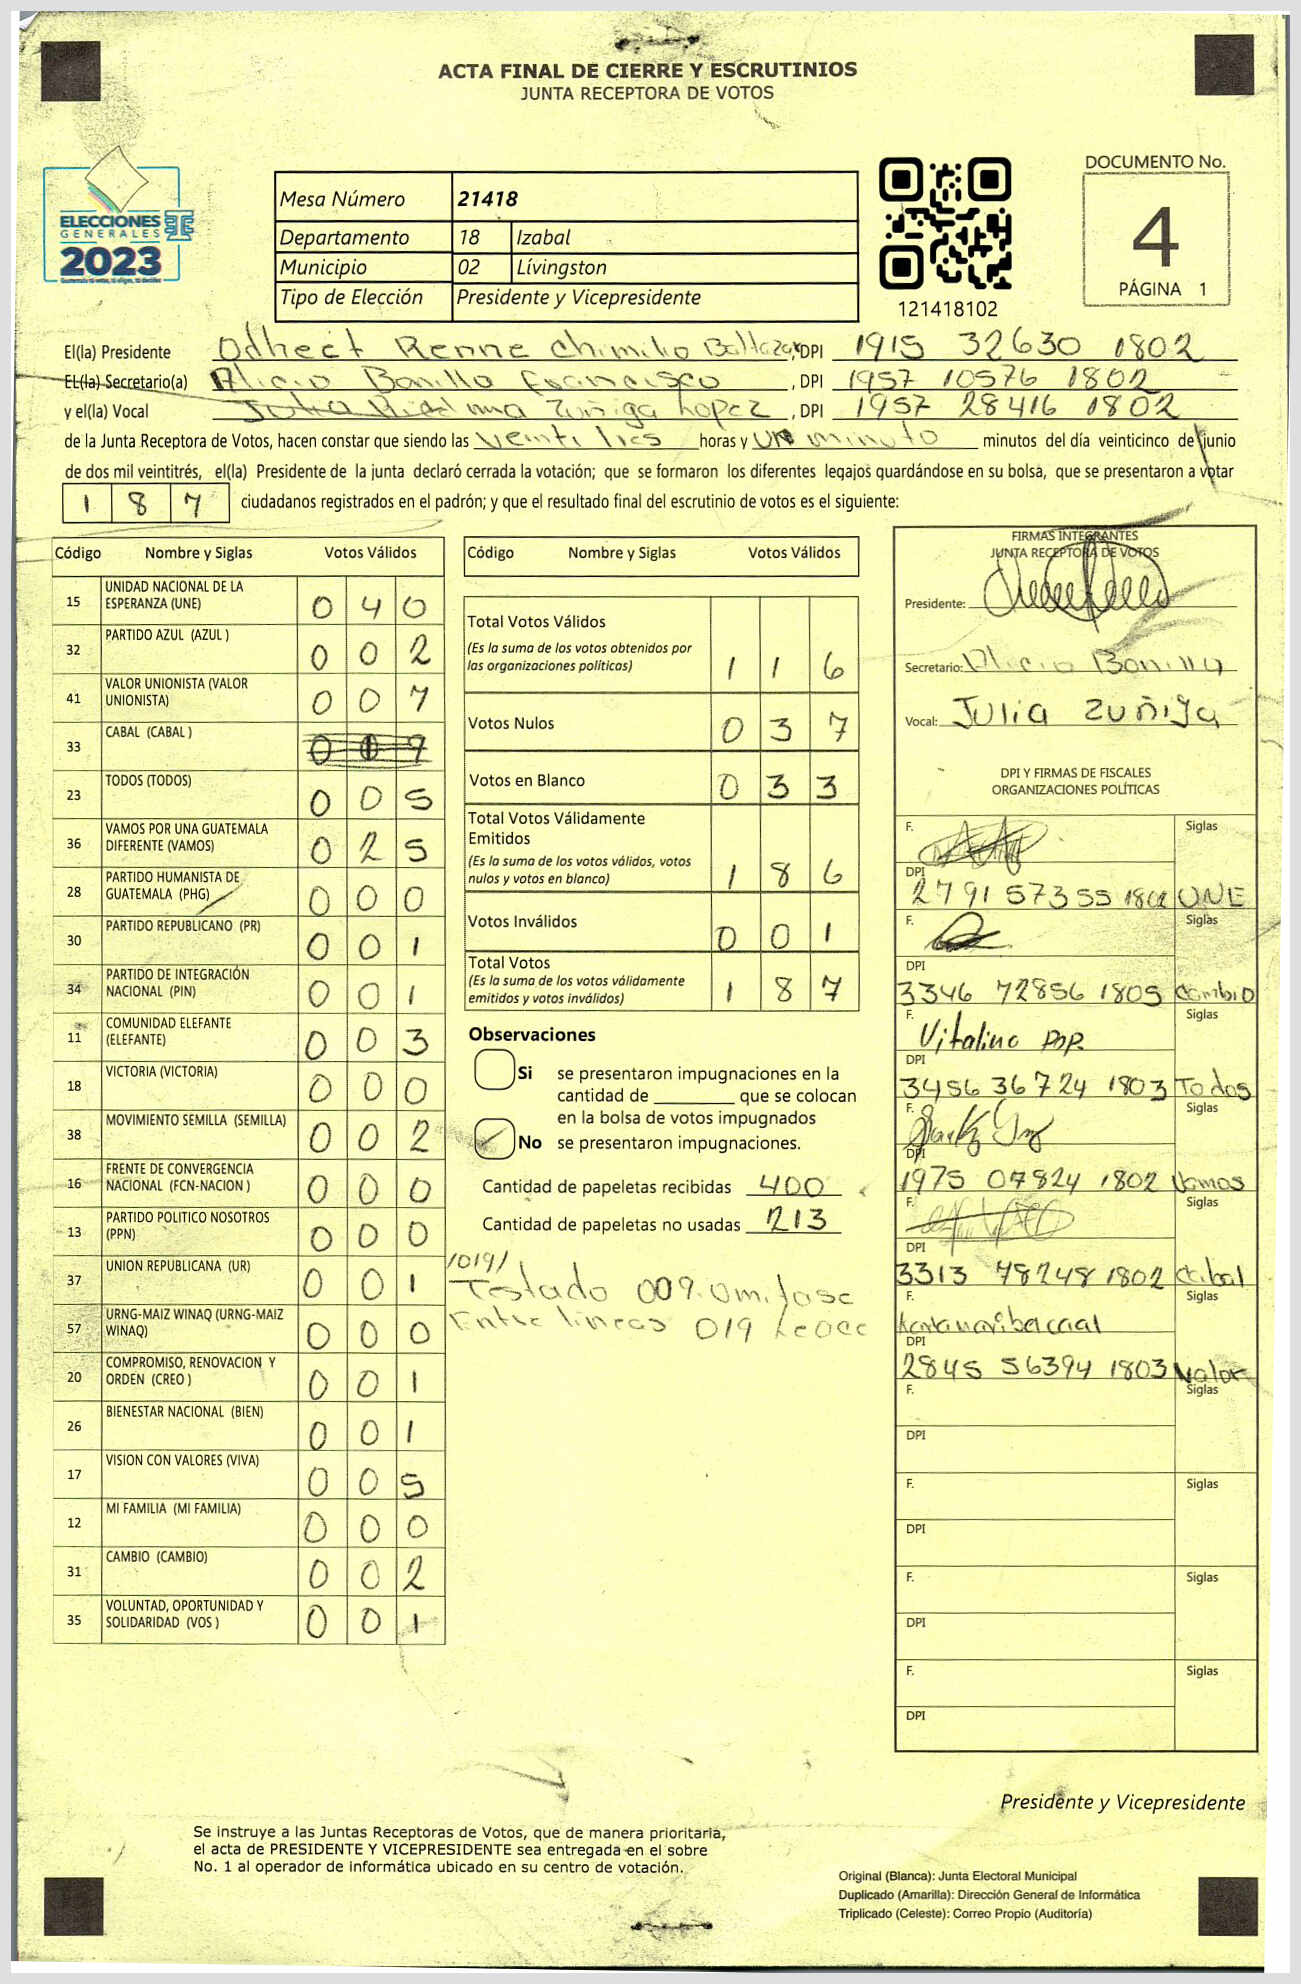 ACTA FINAL DE CIERRE Y ESCRUTINIOS
JUNTA RECEPTORA DE VOTOS
ELECCIONES
GENERALES
2023
Mesa Número 21418
Departamento 18 Izabal
Municipio 02 Lívingston
Tipo de Elección Presidente y Vicepresidente
121418102
DOCUMENTO No.
4
PÁGINA 1
El(la) Presidente Odhect Renne Chimilio Baltazar, DPI 1915 32630 1802
EL(la) Secretario(a) Alicio Bonilla Francisco, DPI 1957 10576 1802
y el(la) Vocal Julia Zuñiga Lopez, DPI 1957 28416 1802
de la Junta Receptora de Votos, hacen constar que siendo las veinti horas y un minuto minutos del día veinticinco de junio
de dos mil veintitrés, el(la) Presidente de la junta declaró cerrada la votación; que se formaron los diferentes legajos quardándose en su bolsa, que se presentaron a votar
187 ciudadanos registrados en el padrón; y que el resultado final del escrutinio de votos es el siguiente:
Código Nombre y Siglas Votos Válidos
15 UNIDAD NACIONAL DE LA ESPERANZA (UNE) 0 4 0
32 PARTIDO AZUL (AZUL ) 0 0 2
41 VALOR UNIONISTA (VALOR UNIONISTA) 0 0 7
33 CABAL (CABAL )
23 TODOS (TODOS) 0 0 5
36 VAMOS POR UNA GUATEMALA DIFERENTE (VAMOS) 0 2 5
28 PARTIDO HUMANISTA DE GUATEMALA (PHG) 0 0 0
30 PARTIDO REPUBLICANO (PR) 0 0 1
34 PARTIDO DE INTEGRACIÓN NACIONAL (PIN) 0 0 1
11 COMUNIDAD ELEFANTE (ELEFANTE) 0 0 3
18 VICTORIA (VICTORIA) 0 0 0
38 MOVIMIENTO SEMILLA (SEMILLA) 0 0 2
16 FRENTE DE CONVERGENCIA NACIONAL (FCN-NACION ) 0 0 0
13 PARTIDO POLITICO NOSOTROS (PPN) 0 0 0
37 UNION REPUBLICANA (UR) 0 0 1
57 URNG-MAIZ WINAQ (URNG-MAIZ WINAQ) 0 0 0
20 COMPROMISO, RENOVACION Y ORDEN (CREO ) 0 0 1
26 BIENESTAR NACIONAL (BIEN) 0 0 1
17 VISION CON VALORES (VIVA) 0 0 5
12 MI FAMILIA (MI FAMILIA) 0 0 0
31 CAMBIO (CAMBIO) 0 0 2
35 VOLUNTAD, OPORTUNIDAD Y SOLIDARIDAD (VOS ) 0 0 1
Código Nombre y Siglas Votos Válidos
Total Votos Válidos
(Es la suma de los votos obtenidos por
las organizaciones políticas) 1 1 6
Votos Nulos 0 3 7
Votos en Blanco 0 3 3
Total Votos Válidamente
Emitidos
(Es la suma de los votos válidos, votos
nulos y votos en blanco) 1 8 6
Votos Inválidos 0 0 1
Total Votos
(Es la suma de los votos válidamente
emitidos y votos inválidos) 1 8 7
Observaciones
Si se presentaron impugnaciones en la
cantidad de ________ que se colocan
en la bolsa de votos impugnados
No se presentaron impugnaciones.
Cantidad de papeletas recibidas 400
Cantidad de papeletas no usadas 213
/019/
Testado 009. Omitase
Entre lineas 019 Lease
FIRMAS INTEGRANTES
JUNTA RECEPTORA DE VOTOS
Presidente:
Secretario: Alicio Bonilla
Vocal: Julia Zuñiga
DPI Y FIRMAS DE FISCALES
ORGANIZACIONES POLÍTICAS
F. Siglas
DPI
2791 57355 1802 UNE
F. Siglas
DPI
3346 72856 1805 Cambio
F. Vitalino Pop. Siglas
DPI
3456 36724 1803 Todos
F. Siglas
DPI
1975 07824 1802 Vamos
F. Siglas
DPI
3313 78248 1802 Cabal
F. Siglas
DPI
2845 56394 1803 Valor
F. Siglas
DPI
F. Siglas
DPI
F. Siglas
DPI
F. Siglas
DPI
Presidente y Vicepresidente
Se instruye a las Juntas Receptoras de Votos, que de manera prioritaria,
el acta de PRESIDENTE Y VICEPRESIDENTE sea entregada en el sobre
No. 1 al operador de informática ubicado en su centro de votación.
Original (Blanca): Junta Electoral Municipal
Duplicado (Amarilla): Dirección General de Informática
Triplicado (Celeste): Correo Propio (Auditoría)